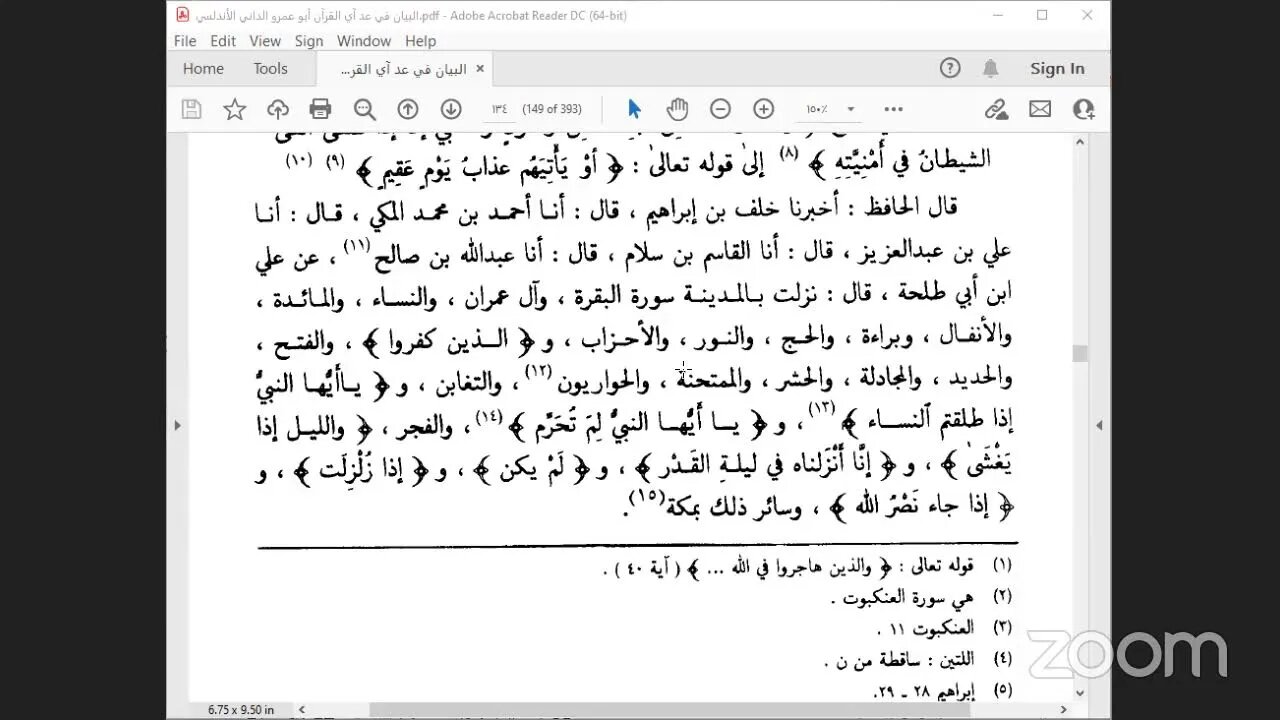 البيان في عد آي القرآن أبو عمرو الداني الأندلسي.pdf - Adobe Acrobat Reader DC (64-bit)
File Edit View Sign Window Help
Home Tools البيان في عد آي القر... × Sign In
١٣٤ (149 of 393) ١٥٠٪
الشيطانُ في أُمْنِيَّتِهِ ﴾ (٨) إلىٰ قوله تعالىٰ : ﴿ أوْ يَأْتِيَهُم عذابُ يَوْمٍ عَقِيمٍ ﴾ (٩) (١٠)
قال الحافظ : أخبرنا خلف بن إبراهيم ، قال : أنـا أحمـد بن محمـد المكي ، قـال : أنـا
علي بن عبدالعزيز ، قال : أنا القاسم بن سلام ، قال : أنا عبدالله بن صالح (١١) ، عن علي
ابن أبي طلحة ، قال : نزلت بـالمـدينـة سورة البقرة ، وآل عمران ، والنسـاء ، والمـائـدة ،
والأنفـال ، وبراءة ، والحـج ، والنـور ، والأحـزاب ، و ﴿ الـذين كفروا ﴾ ، والفتـح ،
والحديد ، والمجادلة ، والحشر ، والممتحنة ، والحواريون (١٢) ، والتغابن ، و ﴿ يـاأيُّهـا النبيُّ
إذا طلقتم ٱلنسـاء ﴾ (١٣) ، و ﴿ يـا أَيُّهـا النبيُّ لِمَ تُحَرِّم ﴾ (١٤) ، والفجر ، ﴿ والليـل إذا
يَغْشَىٰ ﴾ ، و ﴿ إنَّا أَنْزَلناه في ليلةِ القَـدْر ﴾ ، و ﴿ لَمْ يكن ﴾ ، و ﴿ إذا زُلْزِلَت ﴾ ، و
﴿ إذا جاء نَصْرُ الله ﴾ ، وسائر ذلك بمكة (١٥) .
(١) قوله تعالى : ﴿ والذين هاجروا في الله ... ﴾ ( آية ٤٠ ) .
(٢) هي سورة العنكبوت .
(٣) العنكبوت ١١ .
(٤) اللتين : ساقطة من ن .
(٥) إبراهيم ٢٨ - ٢٩.
zoom
6.75 x 9.50 in